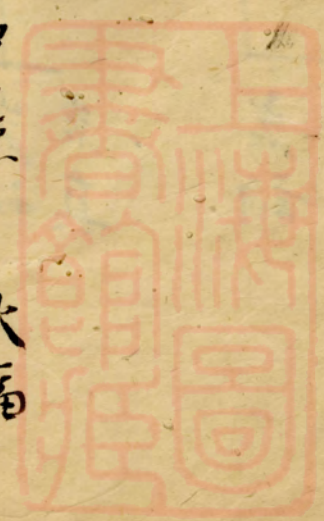 上海圖
書館藏